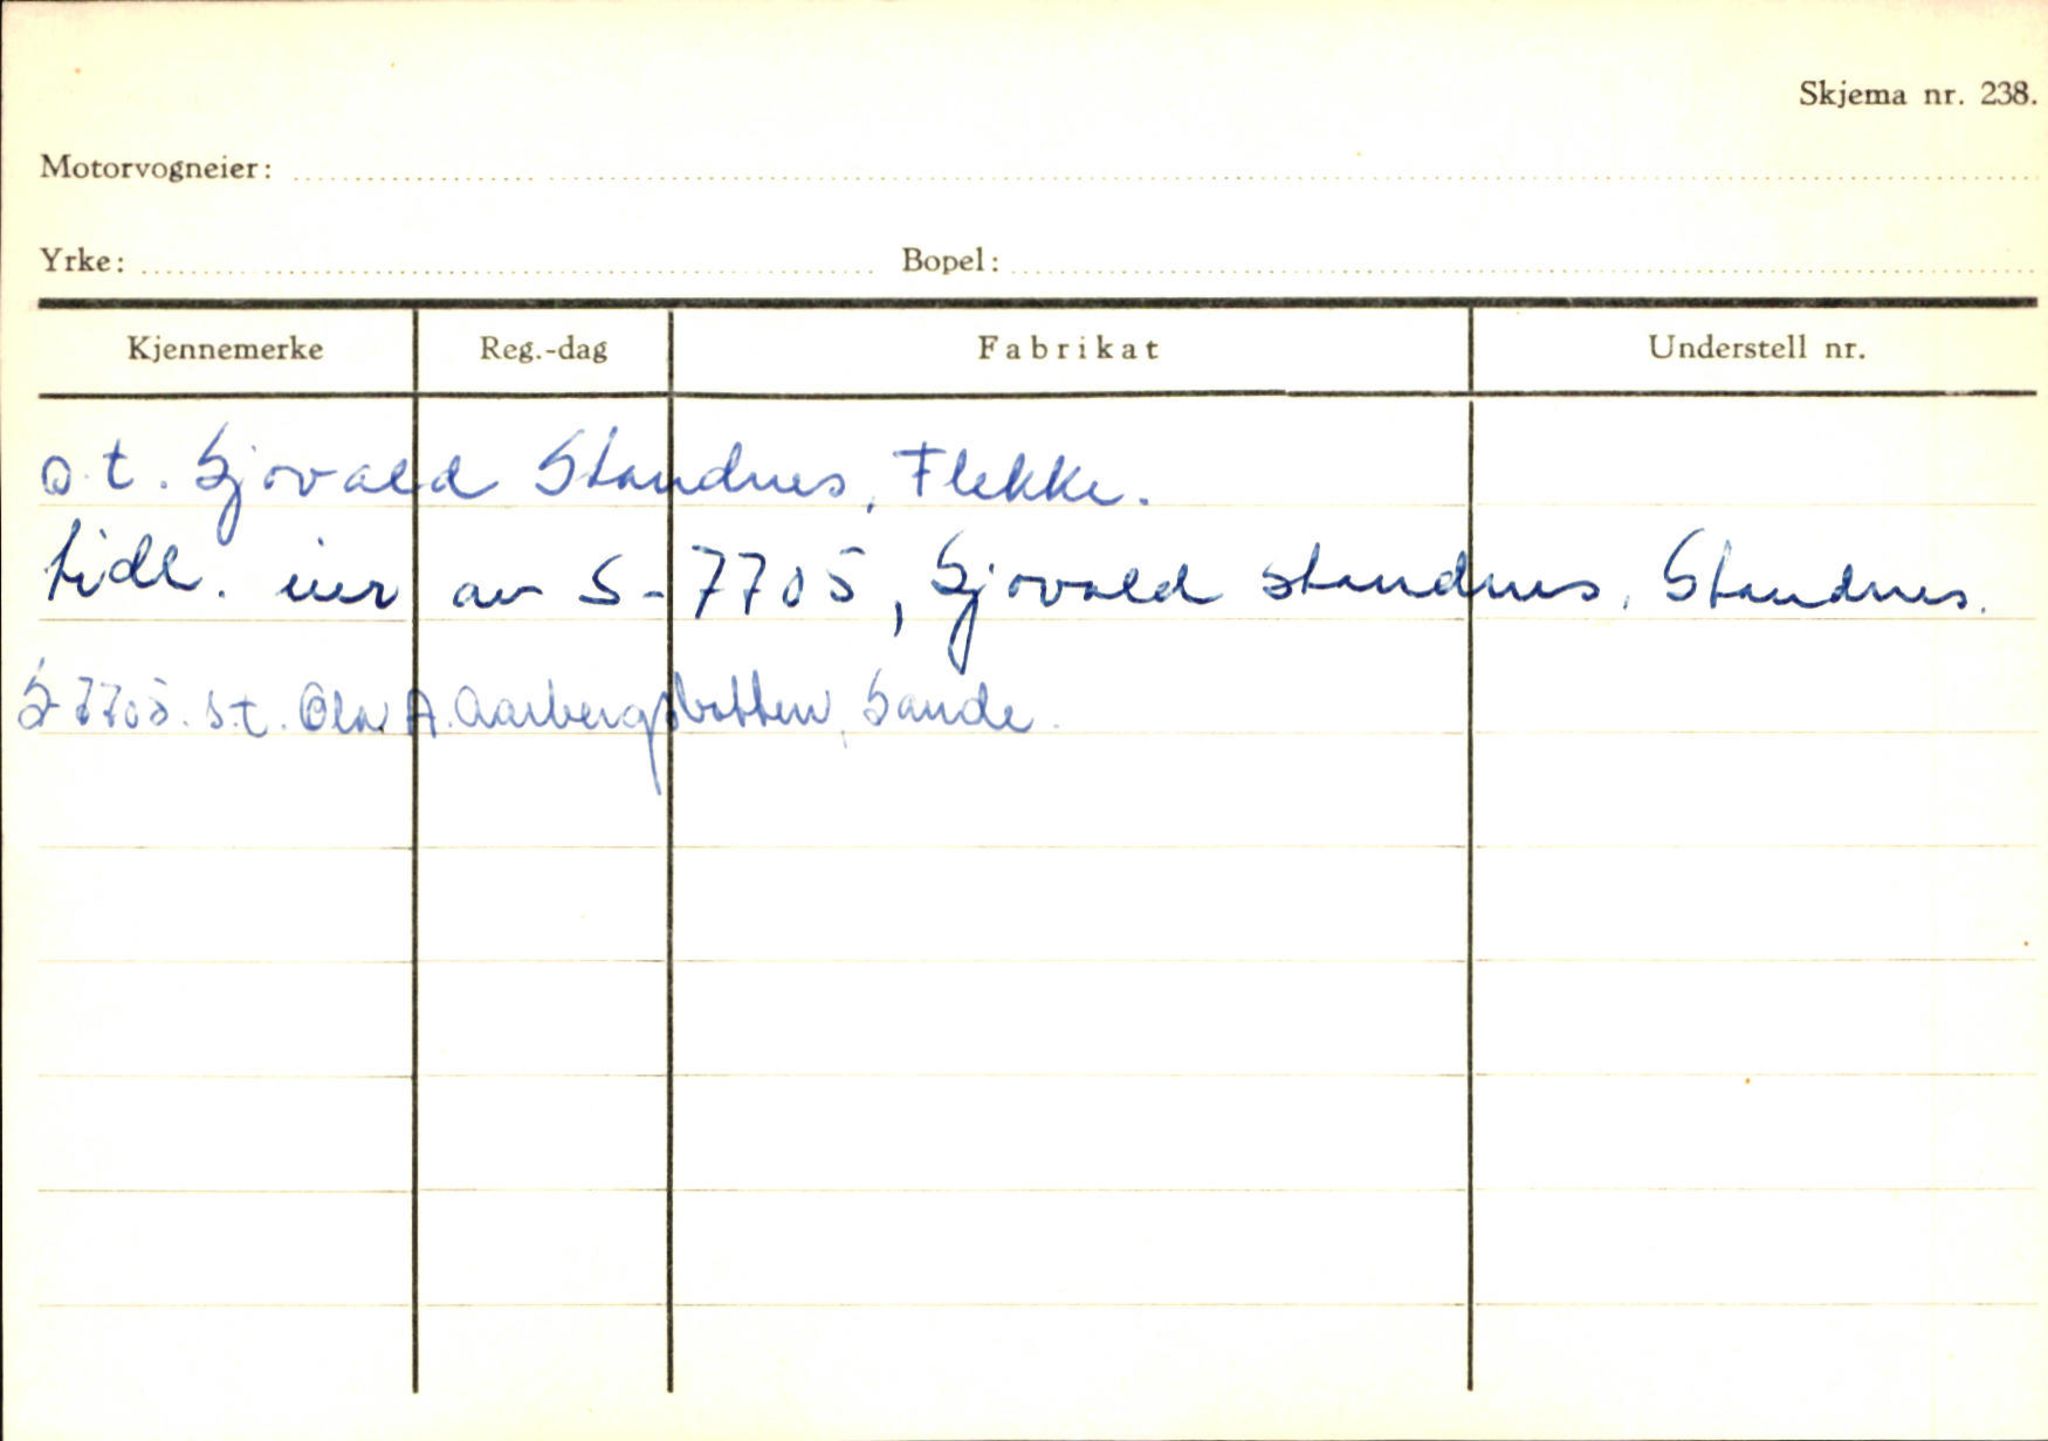 Skjema nr. 238.
Motorvogneier:
Yrke: Bopel:
Kjennemerke Reg.-dag Fabrikat Understell nr.
o.t. Sjovald Standnes, Flekke.
tidl. eier av S-7705, Sjovald Standnes, Standnes.
S-7705. s.t. Olav A. Aarbergsbotten, Sande.